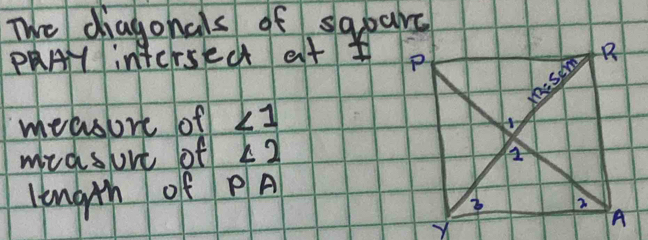 The diagonals of square
PRAY intersect at I
measure of ∠1
measure of ∠2
length of PA
P
R
1
I
3
2
Y
A